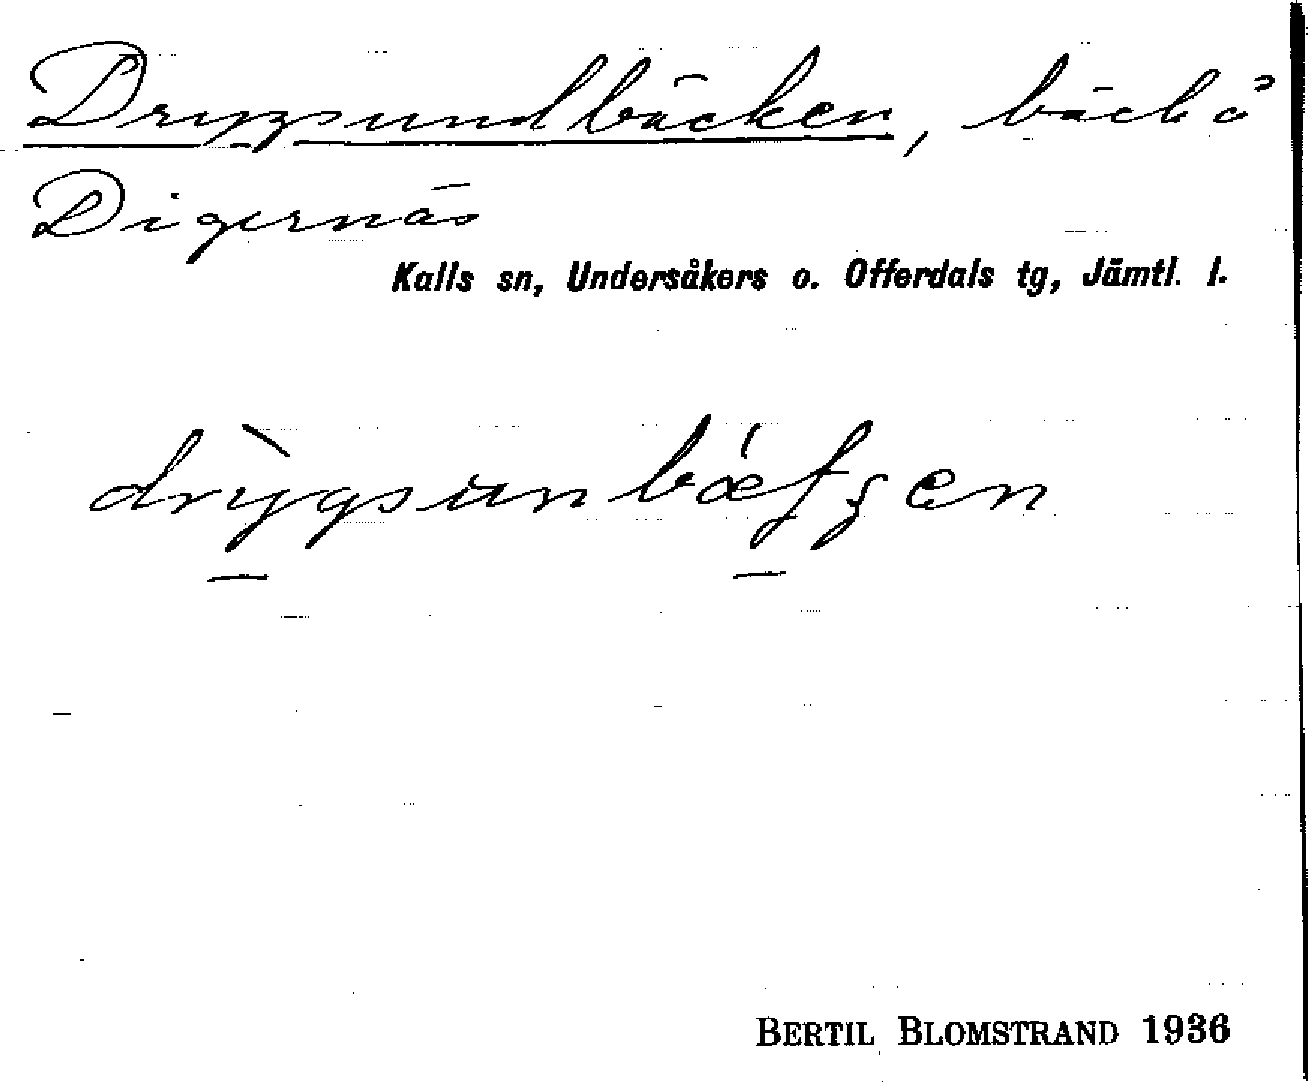 Drygsundbäcken, bäck å
Digernäs
Kalls sn, Undersåkers o. Offerdals tg, Jämtl. l.
drỳgsunbǽʃʒen
BERTIL BLOMSTRAND 1936